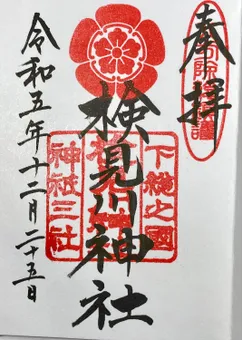 奉拝
八方除総鎮護
下總之國
検見川神社
神祇三社
令和五年十二月二十五日